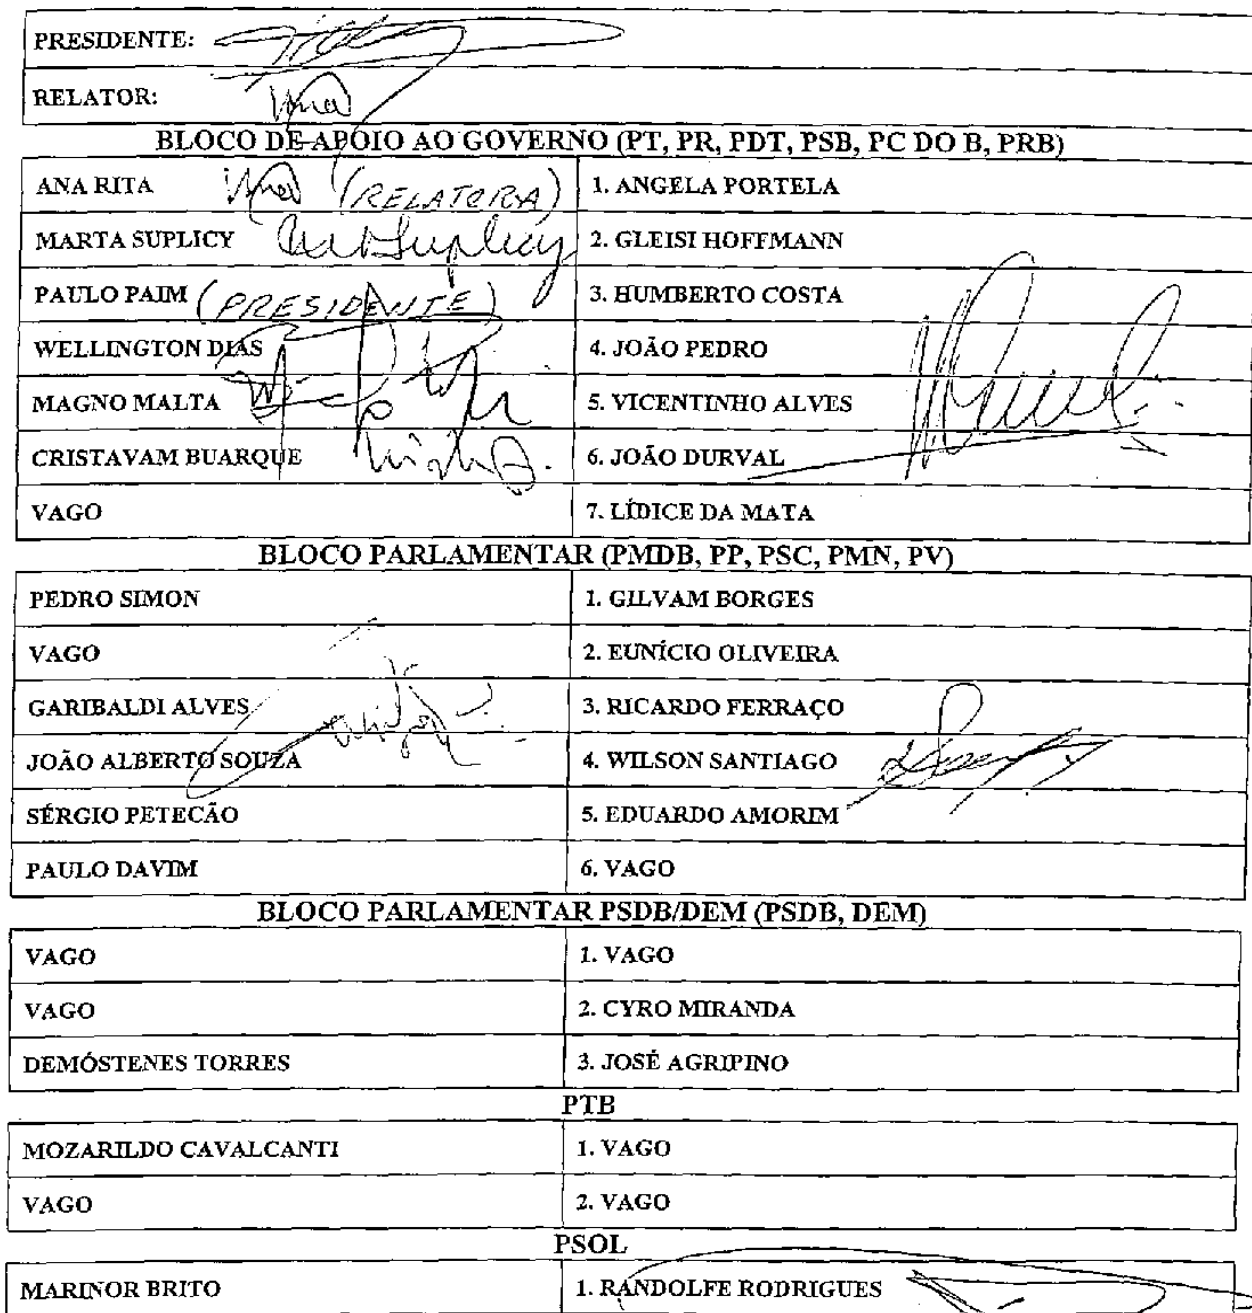 PRESIDENTE:
RELATOR:
BLOCO DE APOIO AO GOVERNO (PT, PR, PDT, PSB, PC DO B, PRB)
ANA RITA (RELATORA) 1. ANGELA PORTELA
MARTA SUPLICY 2. GLEISI HOFFMANN
PAULO PAIM (PRESIDENTE) 3. HUMBERTO COSTA
WELLINGTON DIAS 4. JOÃO PEDRO
MAGNO MALTA 5. VICENTINHO ALVES
CRISTAVAM BUARQUE 6. JOÃO DURVAL
VAGO 7. LÍDICE DA MATA
BLOCO PARLAMENTAR (PMDB, PP, PSC, PMN, PV)
PEDRO SIMON 1. GILVAM BORGES
VAGO 2. EUNÍCIO OLIVEIRA
GARIBALDI ALVES 3. RICARDO FERRAÇO
JOÃO ALBERTO SOUZA 4. WILSON SANTIAGO
SÉRGIO PETECÃO 5. EDUARDO AMORIM
PAULO DAVIM 6. VAGO
BLOCO PARLAMENTAR PSDB/DEM (PSDB, DEM)
VAGO 1. VAGO
VAGO 2. CYRO MIRANDA
DEMÓSTENES TORRES 3. JOSÉ AGRIPINO
PTB
MOZARILDO CAVALCANTI 1. VAGO
VAGO 2. VAGO
PSOL
MARINOR BRITO 1. RANDOLFE RODRIGUES